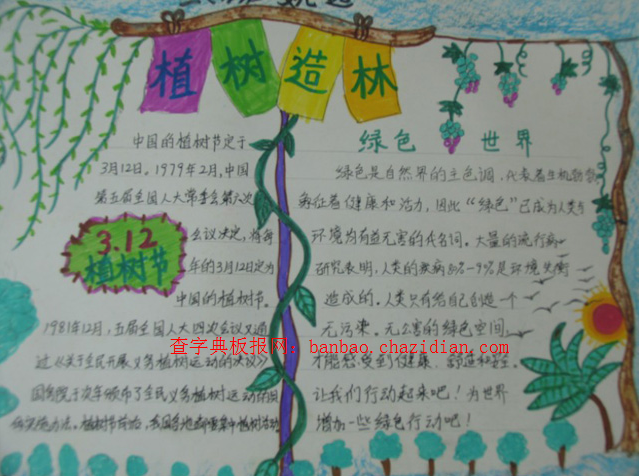 植树造林
中国的植树节定于
3月12日。1979年2月,中国
第五届全国人大常委会第六次
3.12
植树节
会议决定,将每
年的3月12日定为
中国的植树节。
1981年12月,五届全国人大四次会议又通
过《关于全民开展义务植树运动的决议》
国务院于次年颁布了全民义务植树运动的
实施办法。植树节
绿色世界
绿色是自然界的主色调,代表着生机勃勃
象征着健康和活力,因此“绿色”已成为人类与
环境均有益无害的代名词。大量的流行病
研究表明,人类的疾病8%-9%是环境失衡
造成的。人类只有给自己创造一个
无污染。无公害的绿色空间
才能感受到健康、舒适和
让我们行动起来吧!为世界
增加一些绿色行动吧!
查字典板报网:banbao.chazidian.com